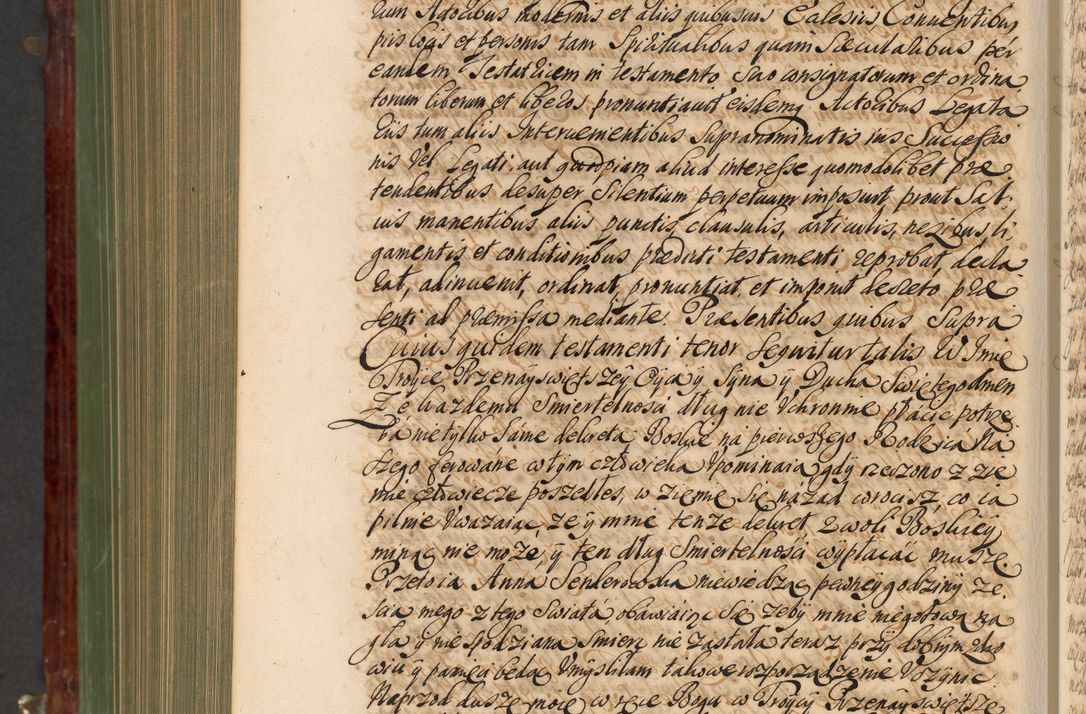 tum Actoribus modernis et aliis quibusuis Ecclesiis, Conuentibus,
piis locis et personis tam Spiritualibus quam Sæcularibus per
eandem Testatricem in testamento suo consignatorum et ordina
torum liberum et liberos pronuntiauit eisdemq Actoribus Legata
riis tum aliis Interuenientibus supranominatis ius Successio
nis vel Legati, aut quodpiam aliud interesse quomodolibet præ
tendentibus desuper Silentium perpetuum imposuit prout sal:
uis manentibus aliis punctis, clausulis, articulis, nexibus li
gamentis et conditionibus prædicti testamenti reprobat, decla
rat, adinuenit, ordinat, pronuntiat, et imponit decreto præ
senti ad præmissa mediante. Præsentibus quibus Supra
Cuius quidem testamenti tenor sequitur talis W Imie
Troyce Przenayswiętszey Oyca y Syna y Ducha Swiętego Amen
Ze każdemu Smiertelności dług nie Uchronnie płacić potrze
ba nie tylko same dekreta Boskie na pierwszego Rodzica Na
szego ferowane w tym człowieka Upominaią gdy rzeczono z zie
mie człowiecze poszedłes, w ziemie się nazad wrocisz, co ia
pilnie Uwazaiąc, ze y mnie tenze dekret z woli Boskiey
minąc nie moze, y ten dług Smiertelności wypłacac muszę.
Przetoia Anna Senkerowska niewiedząc pewney godziny ze.
scia mego z tego Swiata obawiaiąc się zeby mnie niegotową na
gła y nie spodziana Smierc nie zastała teraz przy dobrym zdro
wiu y pamięci będąc Umysliłam takowe rozporządzenie Uczynic
Naprzod duszę moię w ręce Bogu w Troycy Przenayswiętsze